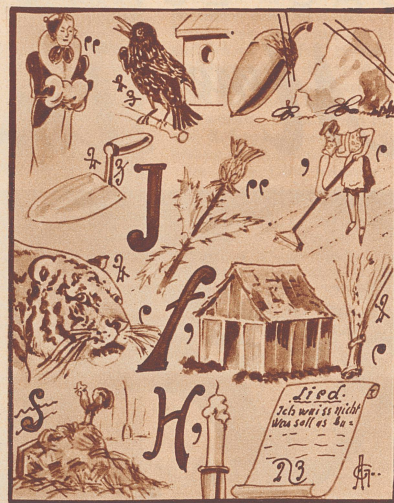 ,,
2 3
2 3 J ,, , ,
2 , f , 2 ,
S H ,
Lied.
Ich weiss nicht
Was soll es be=
2 3